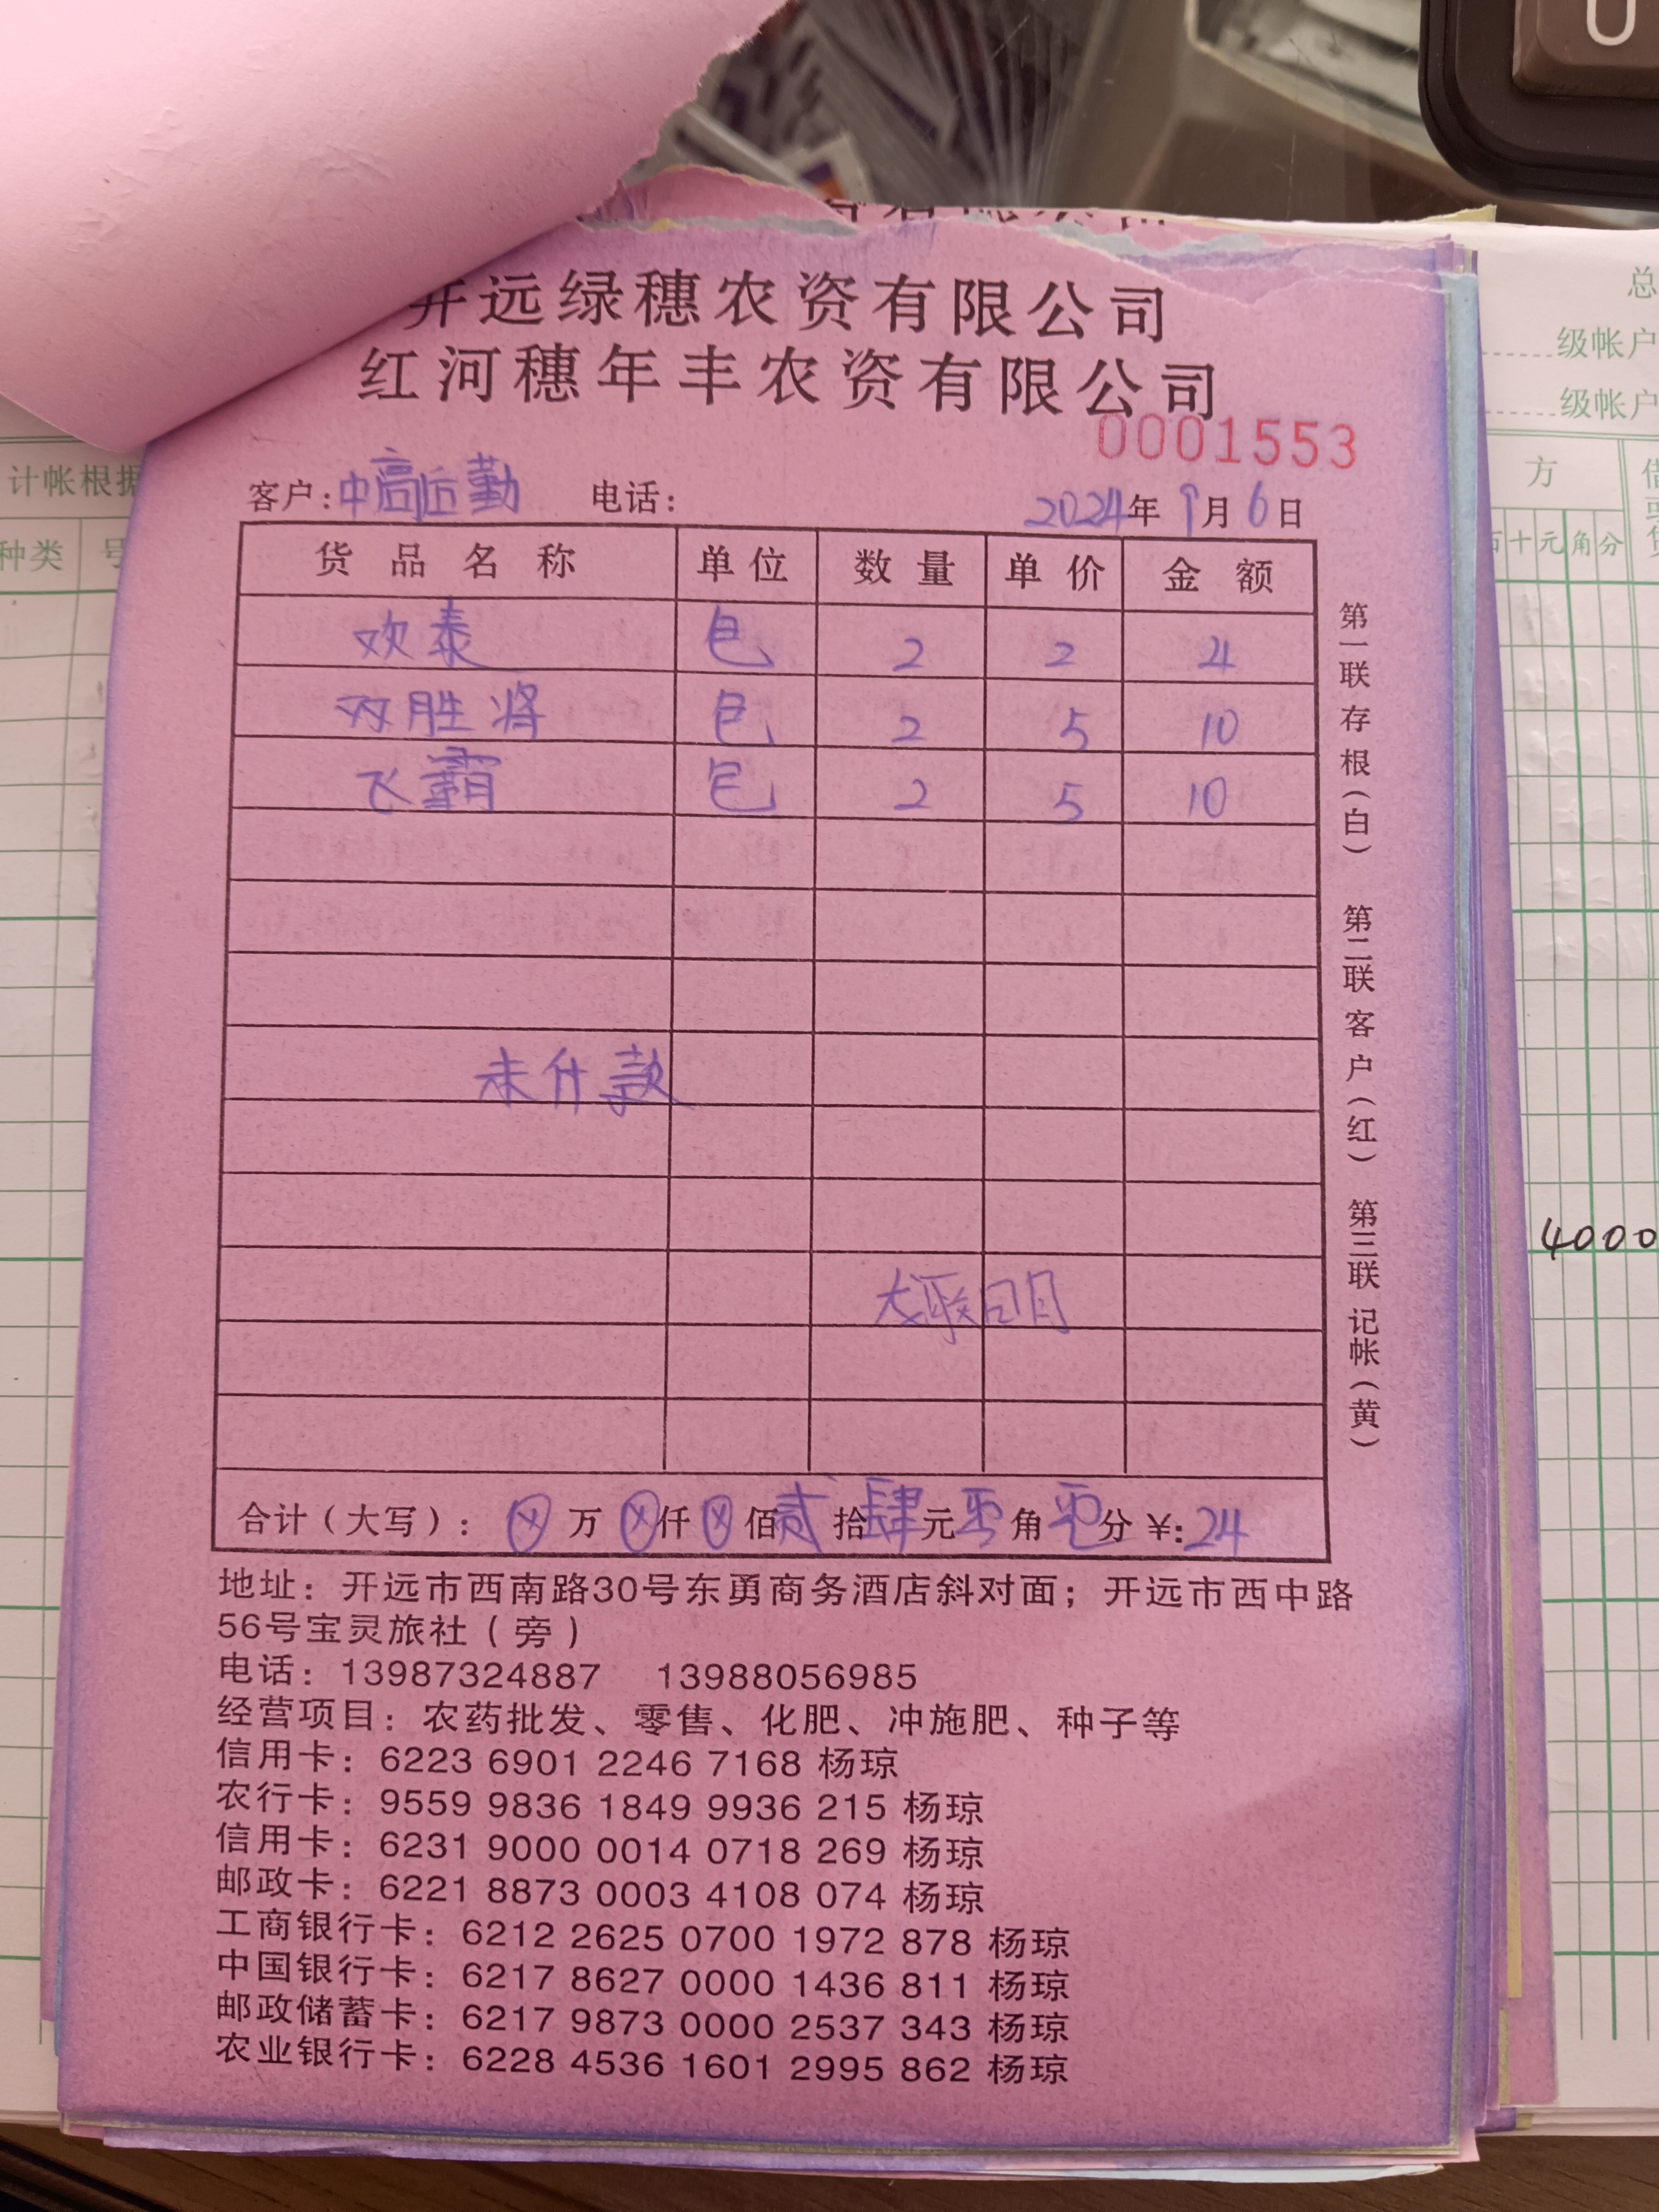 开远绿穗农资有限公司
红河穗年丰农资有限公司
0001553
客户:中高后勤 电话: 2024年9月6日
货品名称 单位 数量 单价 金额
欢泰 包 2 2 4
双胜将 包 2 5 10
飞霸 包 2 5 10
未什款
合计(大写): ⊗万⊗仟⊗佰贰拾肆元零角零分¥:24
第一联存根(白) 第二联客户(红) 第三联记帐(黄)
地址: 开远市西南路30号东勇商务酒店斜对面; 开远市西中路
56号宝灵旅社(旁)
电话: 13987324887 13988056985
经营项目: 农药批发、零售、化肥、冲施肥、种子等
信用卡: 6223 6901 2246 7168 杨琼
农行卡: 9559 9836 1849 9936 215 杨琼
信用卡: 6231 9000 0014 0718 269 杨琼
邮政卡: 6221 8873 0003 4108 074 杨琼
工商银行卡: 6212 2625 0700 1972 878 杨琼
中国银行卡: 6217 8627 0000 1436 811 杨琼
邮政储蓄卡: 6217 9873 0000 2537 343 杨琼
农业银行卡: 6228 4536 1601 2995 862 杨琼
计帐根据
种类 号
总
级帐户
级帐户
方
百十元角分
4000